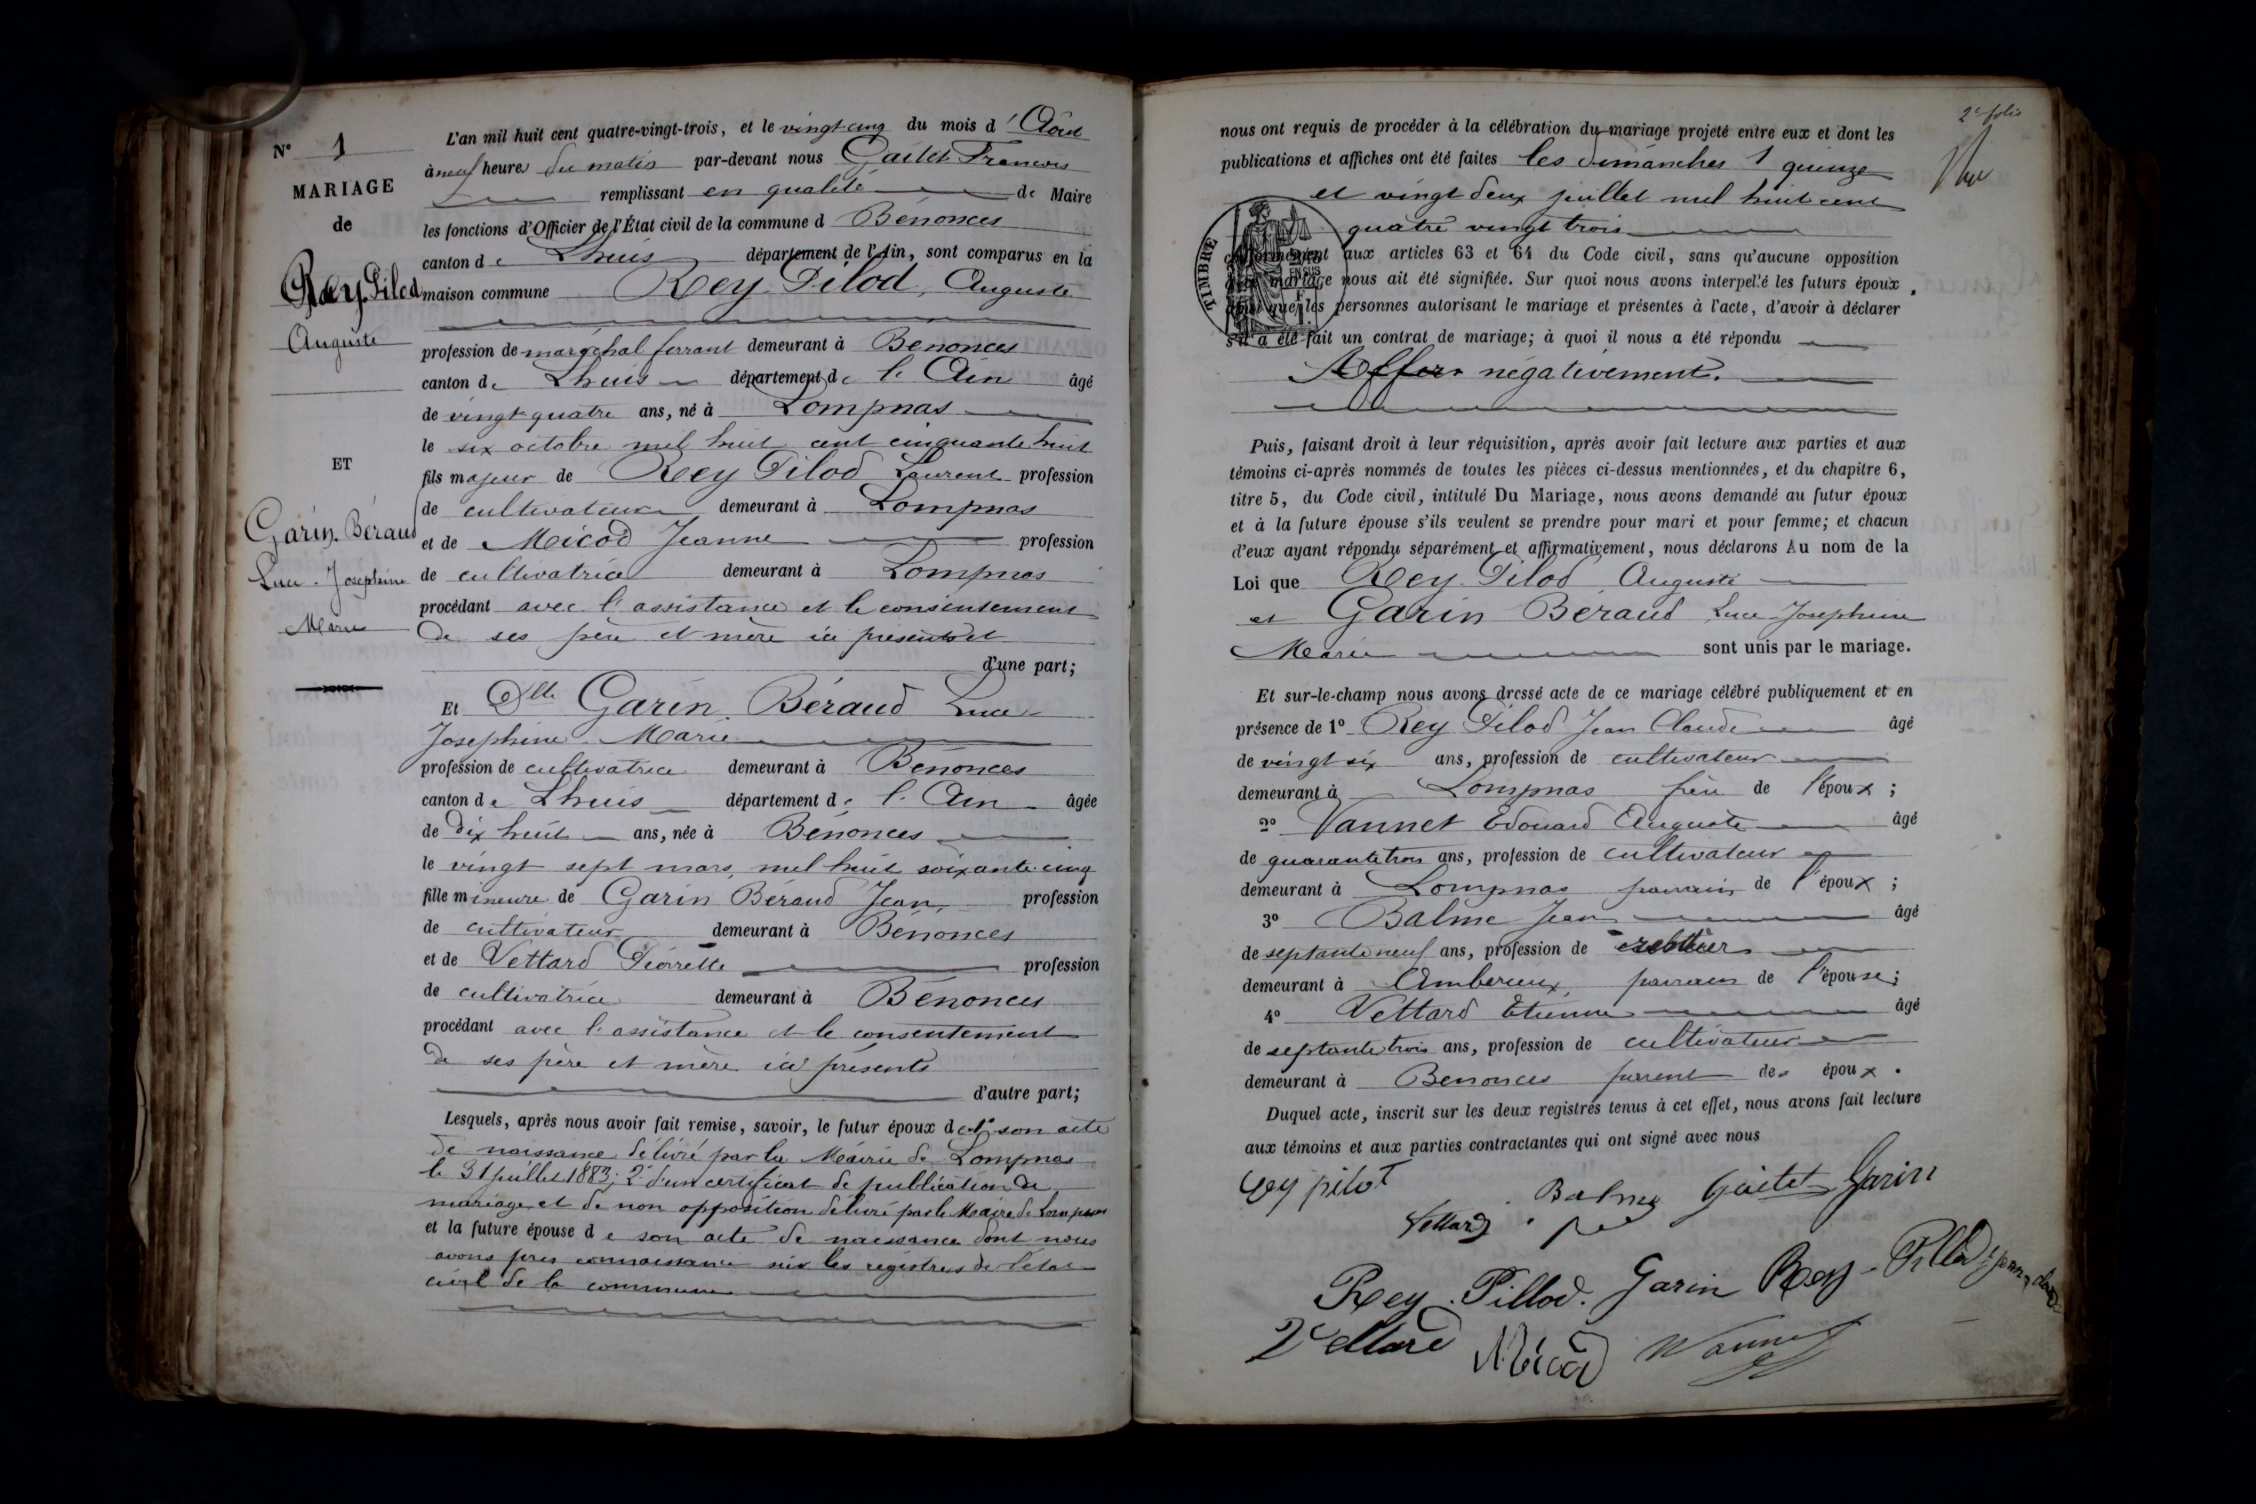 N° 1
MARIAGE
de
Rey Pilod
Auguste
ET
Garin Béraud
Luce Josephine
Marie
L'an mil huit cent quatre-vingt-trois, et le vingt cinq du mois d'Août
à neuf heures du matin par-devant nous Gaitet François
remplissant en qualité de Maire
les fonctions d'Officier de l'État civil de la commune d Bénonces
canton de Lhuis département de l'Ain, sont comparus en la
maison commune Rey Pilod, Auguste
profession de maréchal ferrant demeurant à Bénonces
canton de Lhuis département de l'Ain âgé
de vingt quatre ans, né à Lompnas
le six octobre mil huit cent cinquante huit
fils majeur de Rey Pilod Laurent profession
de cultivateur demeurant à Lompnas
et de Micod Jeanne profession
de cultivatrice demeurant à Lompnas
procédant avec l'assistance et le consentement
de ses père et mère ici présents et
d'une part;
Et Dlle Garin Béraud Luce
Josephine Marie
profession de cultivatrice demeurant à Bénonces
canton de Lhuis département de l'Ain âgée
de dix huit ans, née à Bénonces
le vingt sept mars, mil huit soixante cinq
fille mineure de Garin Béraud Jean profession
de cultivateur demeurant à Bénonces
et de Vettard Pierrette profession
de cultivatrice demeurant à Bénonces
procédant avec l'assistance et le consentement
de ses père et mère ici présents
d'autre part;
Lesquels, après nous avoir fait remise, savoir, le futur époux de 1° son acte
de naissance délivré par la Mairie de Lompnas
le 31 juillet 1883; 2° d'un certificat de publication de
mariage et de non opposition délivré par le Maire de Lompnas
et la future épouse de son acte de naissance dont nous
avons pris connaissance sur les registres de l'état
civil de la commune
2e folio
nous ont requis de procéder à la célébration du mariage projeté entre eux et dont les
publications et affiches ont été faites les dimanches quinze
et vingt deux juillet mil huit cent
quatre vingt trois
TIMBRE
conformément aux articles 63 et 64 du Code civil, sans qu'aucune opposition
audit mariage nous ait été signifiée. Sur quoi nous avons interpellé les futurs époux,
ainsi que les personnes autorisant le mariage et présentes à l'acte, d'avoir à déclarer
s'il a été fait un contrat de mariage; à quoi il nous a été répondu
négativement.
Puis, faisant droit à leur réquisition, après avoir fait lecture aux parties et aux
témoins ci-après nommés de toutes les pièces ci-dessus mentionnées, et du chapitre 6,
titre 5, du Code civil, intitulé Du Mariage, nous avons demandé au futur époux
et à la future épouse s'ils veulent se prendre pour mari et pour femme; et chacun
d'eux ayant répondu séparément et affirmativement, nous déclarons Au nom de la
Loi que Rey Pilod Auguste
et Garin Béraud Luce Josephine
Marie sont unis par le mariage.
Et sur-le-champ nous avons dressé acte de ce mariage célébré publiquement et en
présence de 1° Rey Pilod Jean Claude âgé
de vingt six ans, profession de cultivateur
demeurant à Lompnas frère de l'époux;
2° Vannet Edouard Auguste âgé
de quarante trois ans, profession de cultivateur
demeurant à Lompnas parrain de l'époux;
3° Balme Jean âgé
de septante neuf ans, profession de rentier
demeurant à Amberieux, parrain de l'épouse;
4° Vettard Etienne âgé
de septante trois ans, profession de cultivateur
demeurant à Benonces parent des époux.
Duquel acte, inscrit sur les deux registres tenus à cet effet, nous avons fait lecture
aux témoins et aux parties contractantes qui ont signé avec nous
rey pilot
Vettard Balme Gaitet Garin
Rey. Pillod. Garin Rey-Pillod jean claude
Vettard Micod Wannet